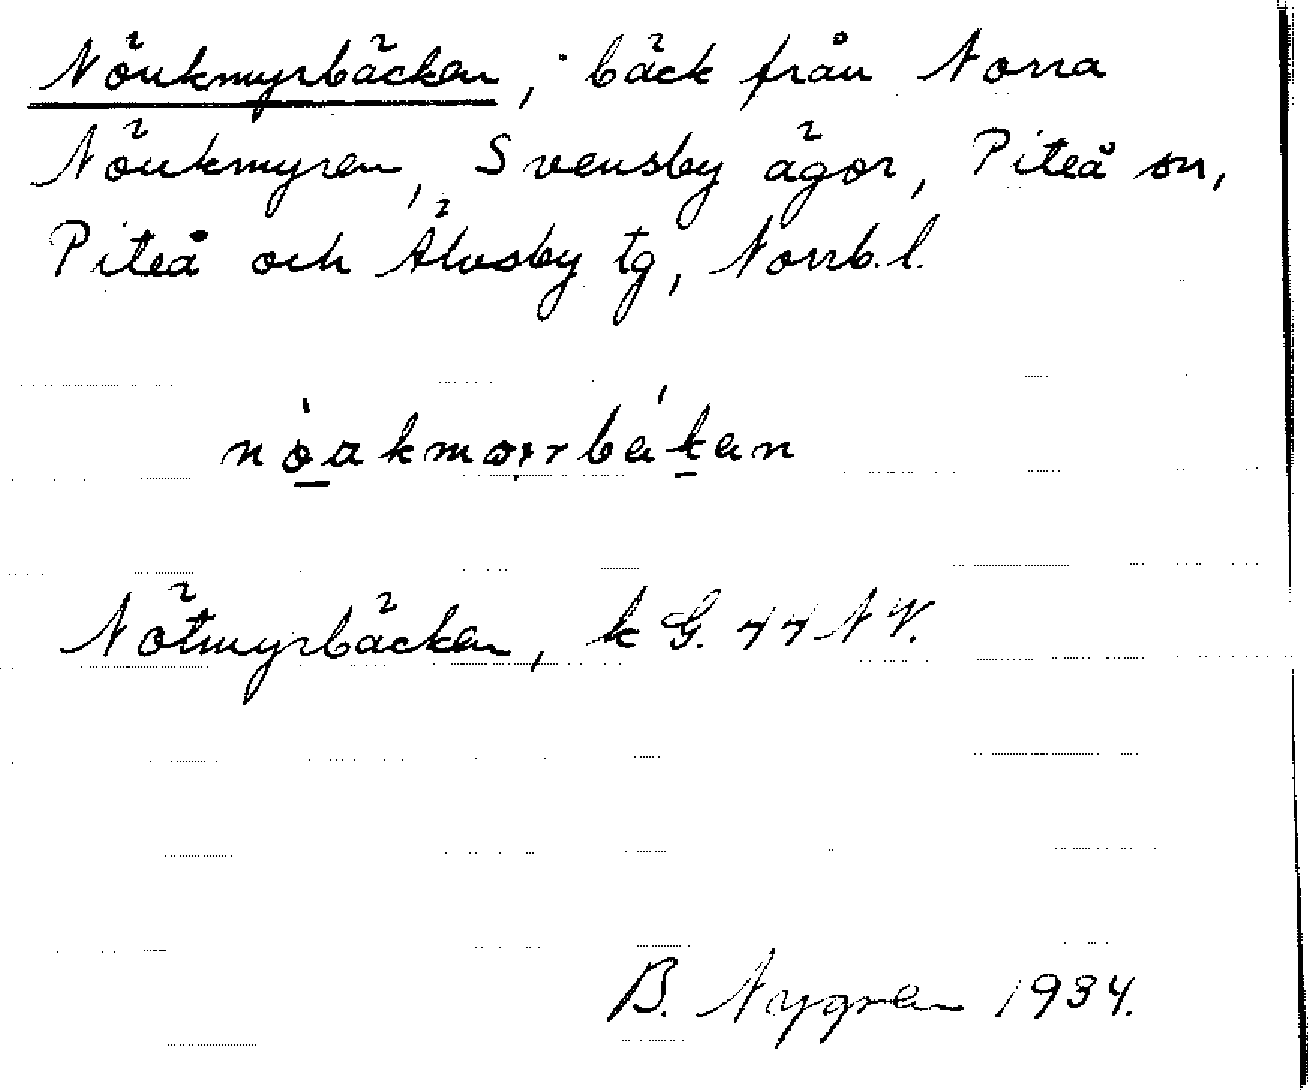 Nöukmyrbäcken, bäck från Norra
Nöukmyren, Svensby ägor, Piteå sn,
Piteå och Älvsby tg, Norrb. l.
Nötmyrbäcken, k G. 44 NV.
B. Nygren 1934.